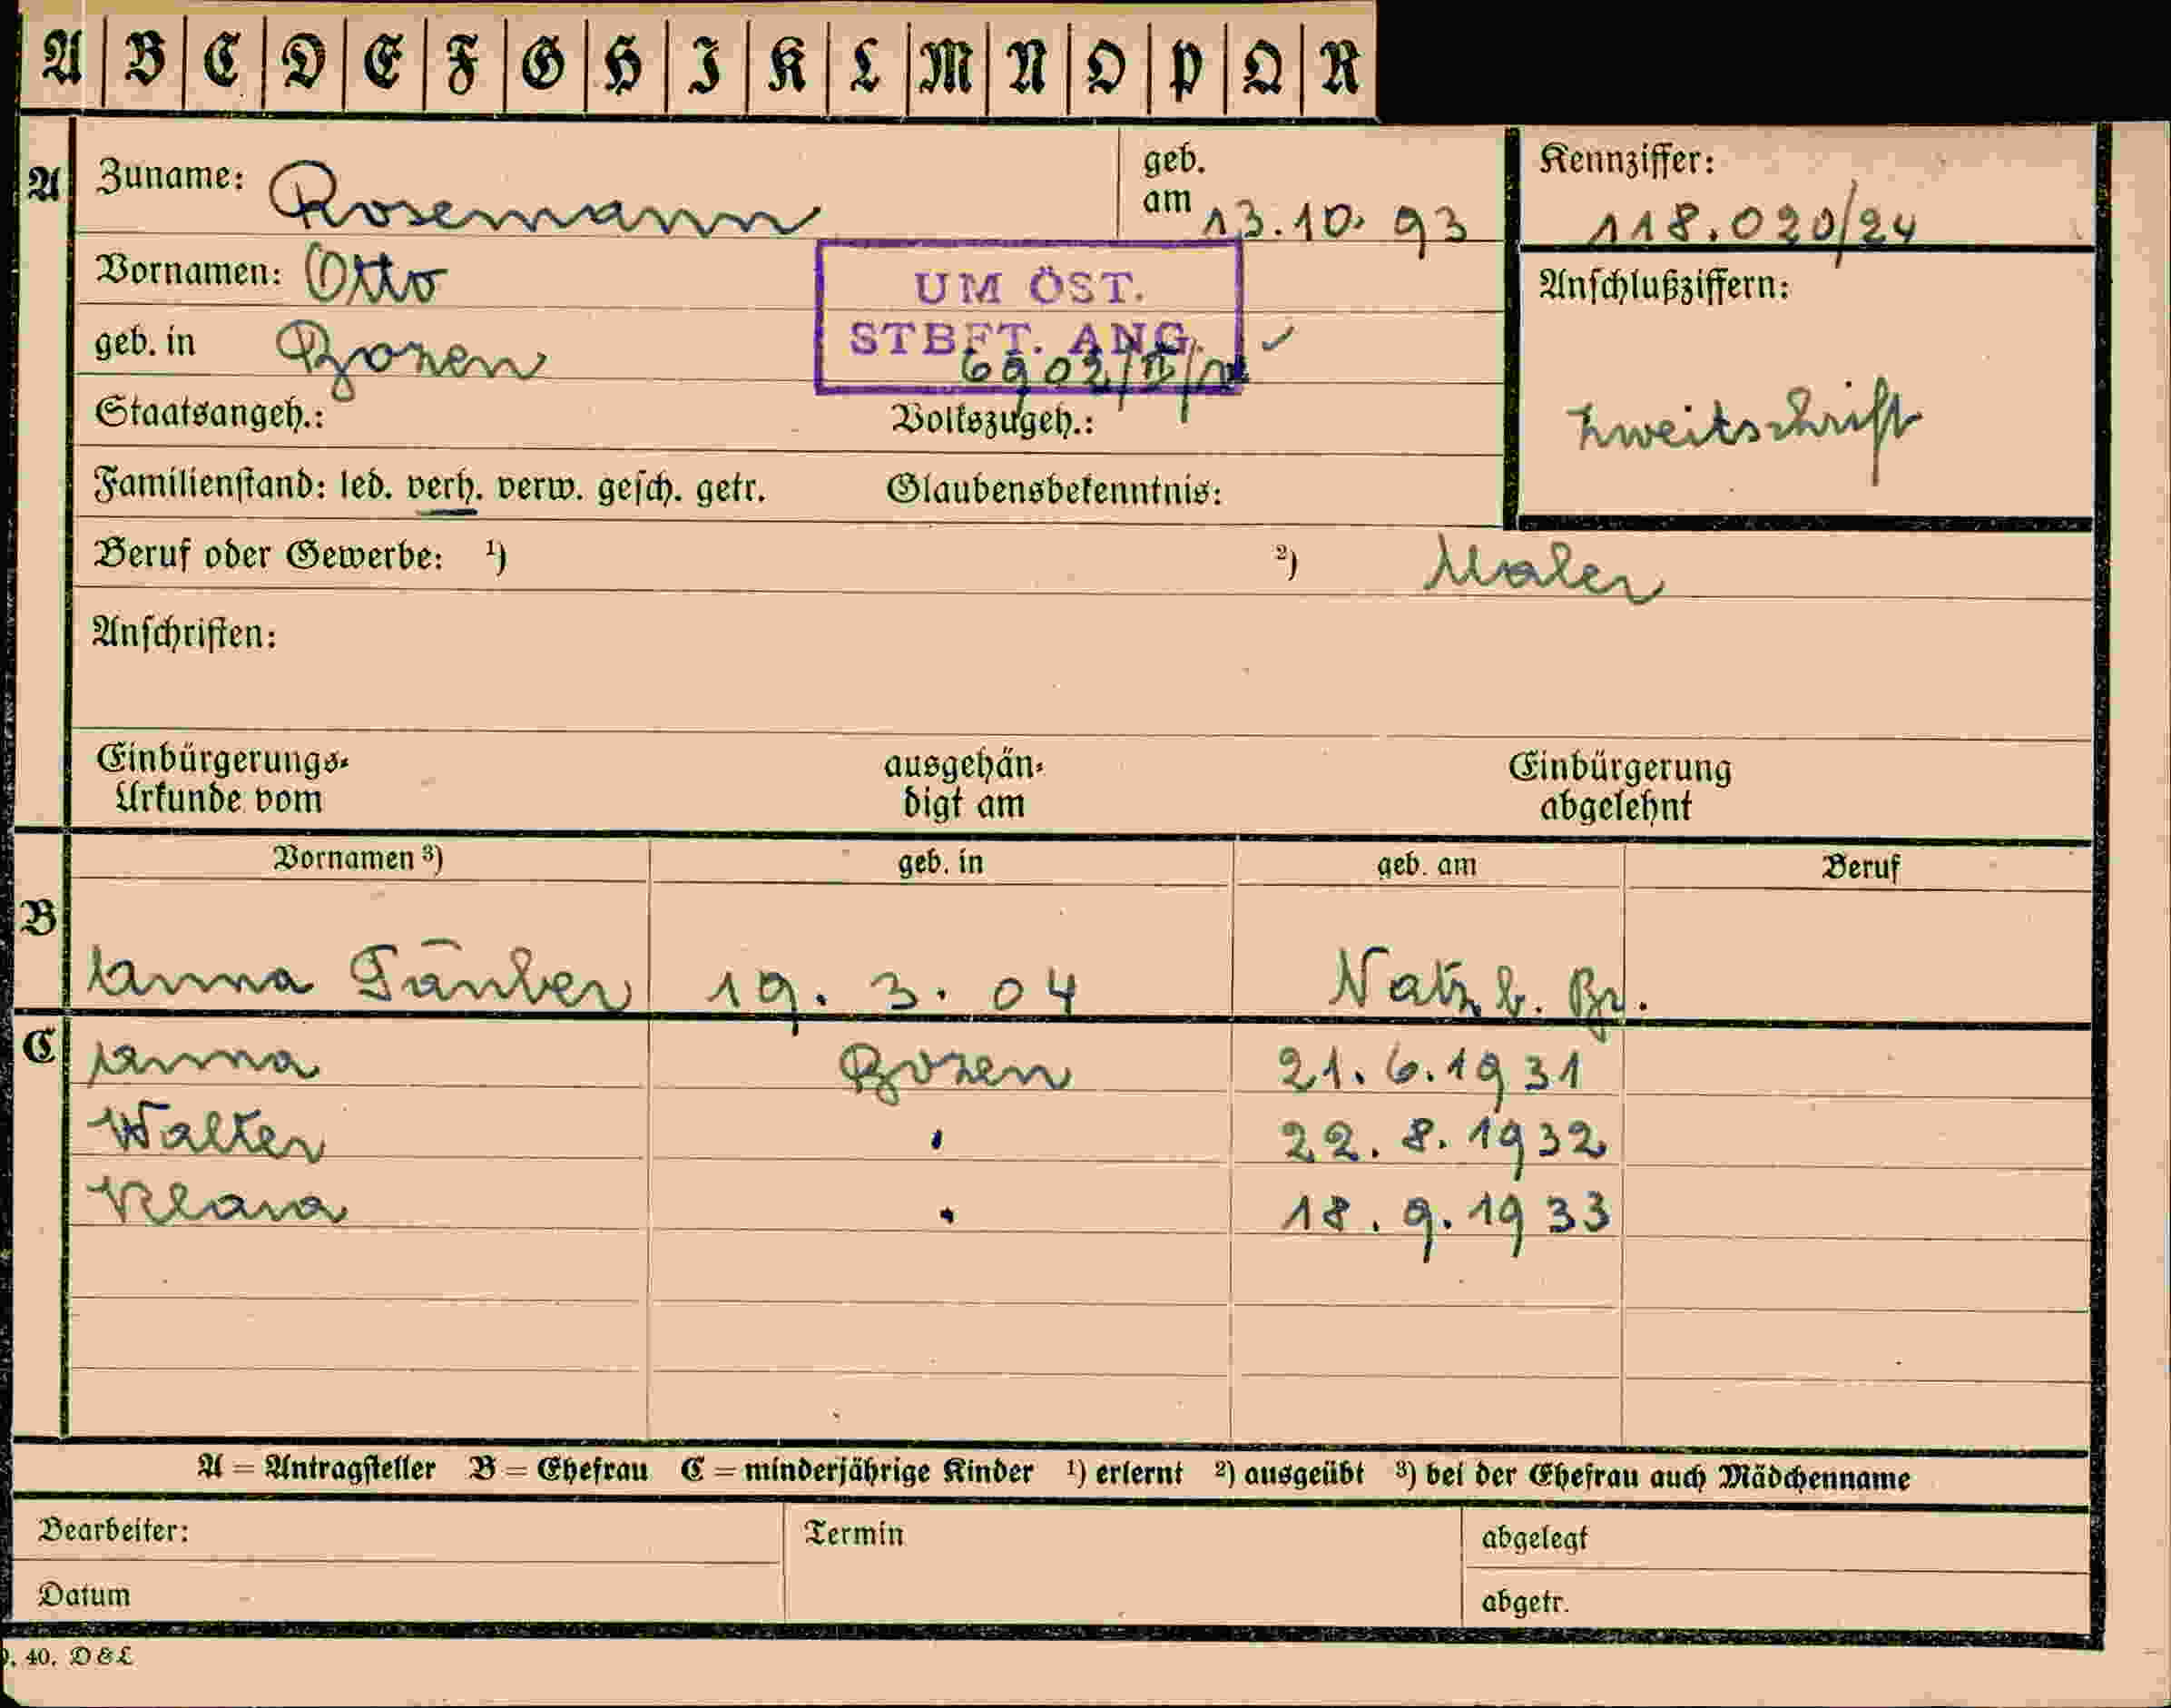 A B C D E F G H I K L M N O P Q R
A Zuname: Rosemann geb. am 13.10.93 Kennziffer: 118.020/24
Vornamen: Otto
UM ÖST.
STBFT. ANG.
geb. in Bozen
6902/II/
Anschlußziffern:
Zweitschrift
Staatsangeh.: Volkszugeh.:
Familienstand: led. verh. verw. gesch. getr. Glaubensbekenntnis:
Beruf oder Gewerbe: 1) 2) Maler
Anschriften:
Einbürgerungs- ausgehän- Einbürgerung
Urkunde vom digt am abgelehnt
Vornamen 3) geb. in geb. am Beruf
B
Anna Täuber 19. 3. 04 Natz b. Br.
C Anna Bozen 21.6.1931
Walter " 22.8.1932
Klara " 18.9.1933
A = Antragsteller B = Ehefrau C = minderjährige Kinder 1) erlernt 2) ausgeübt 3) bei der Ehefrau auch Mädchenname
Bearbeiter: Termin abgelegt
Datum abgetr.
40. D&L